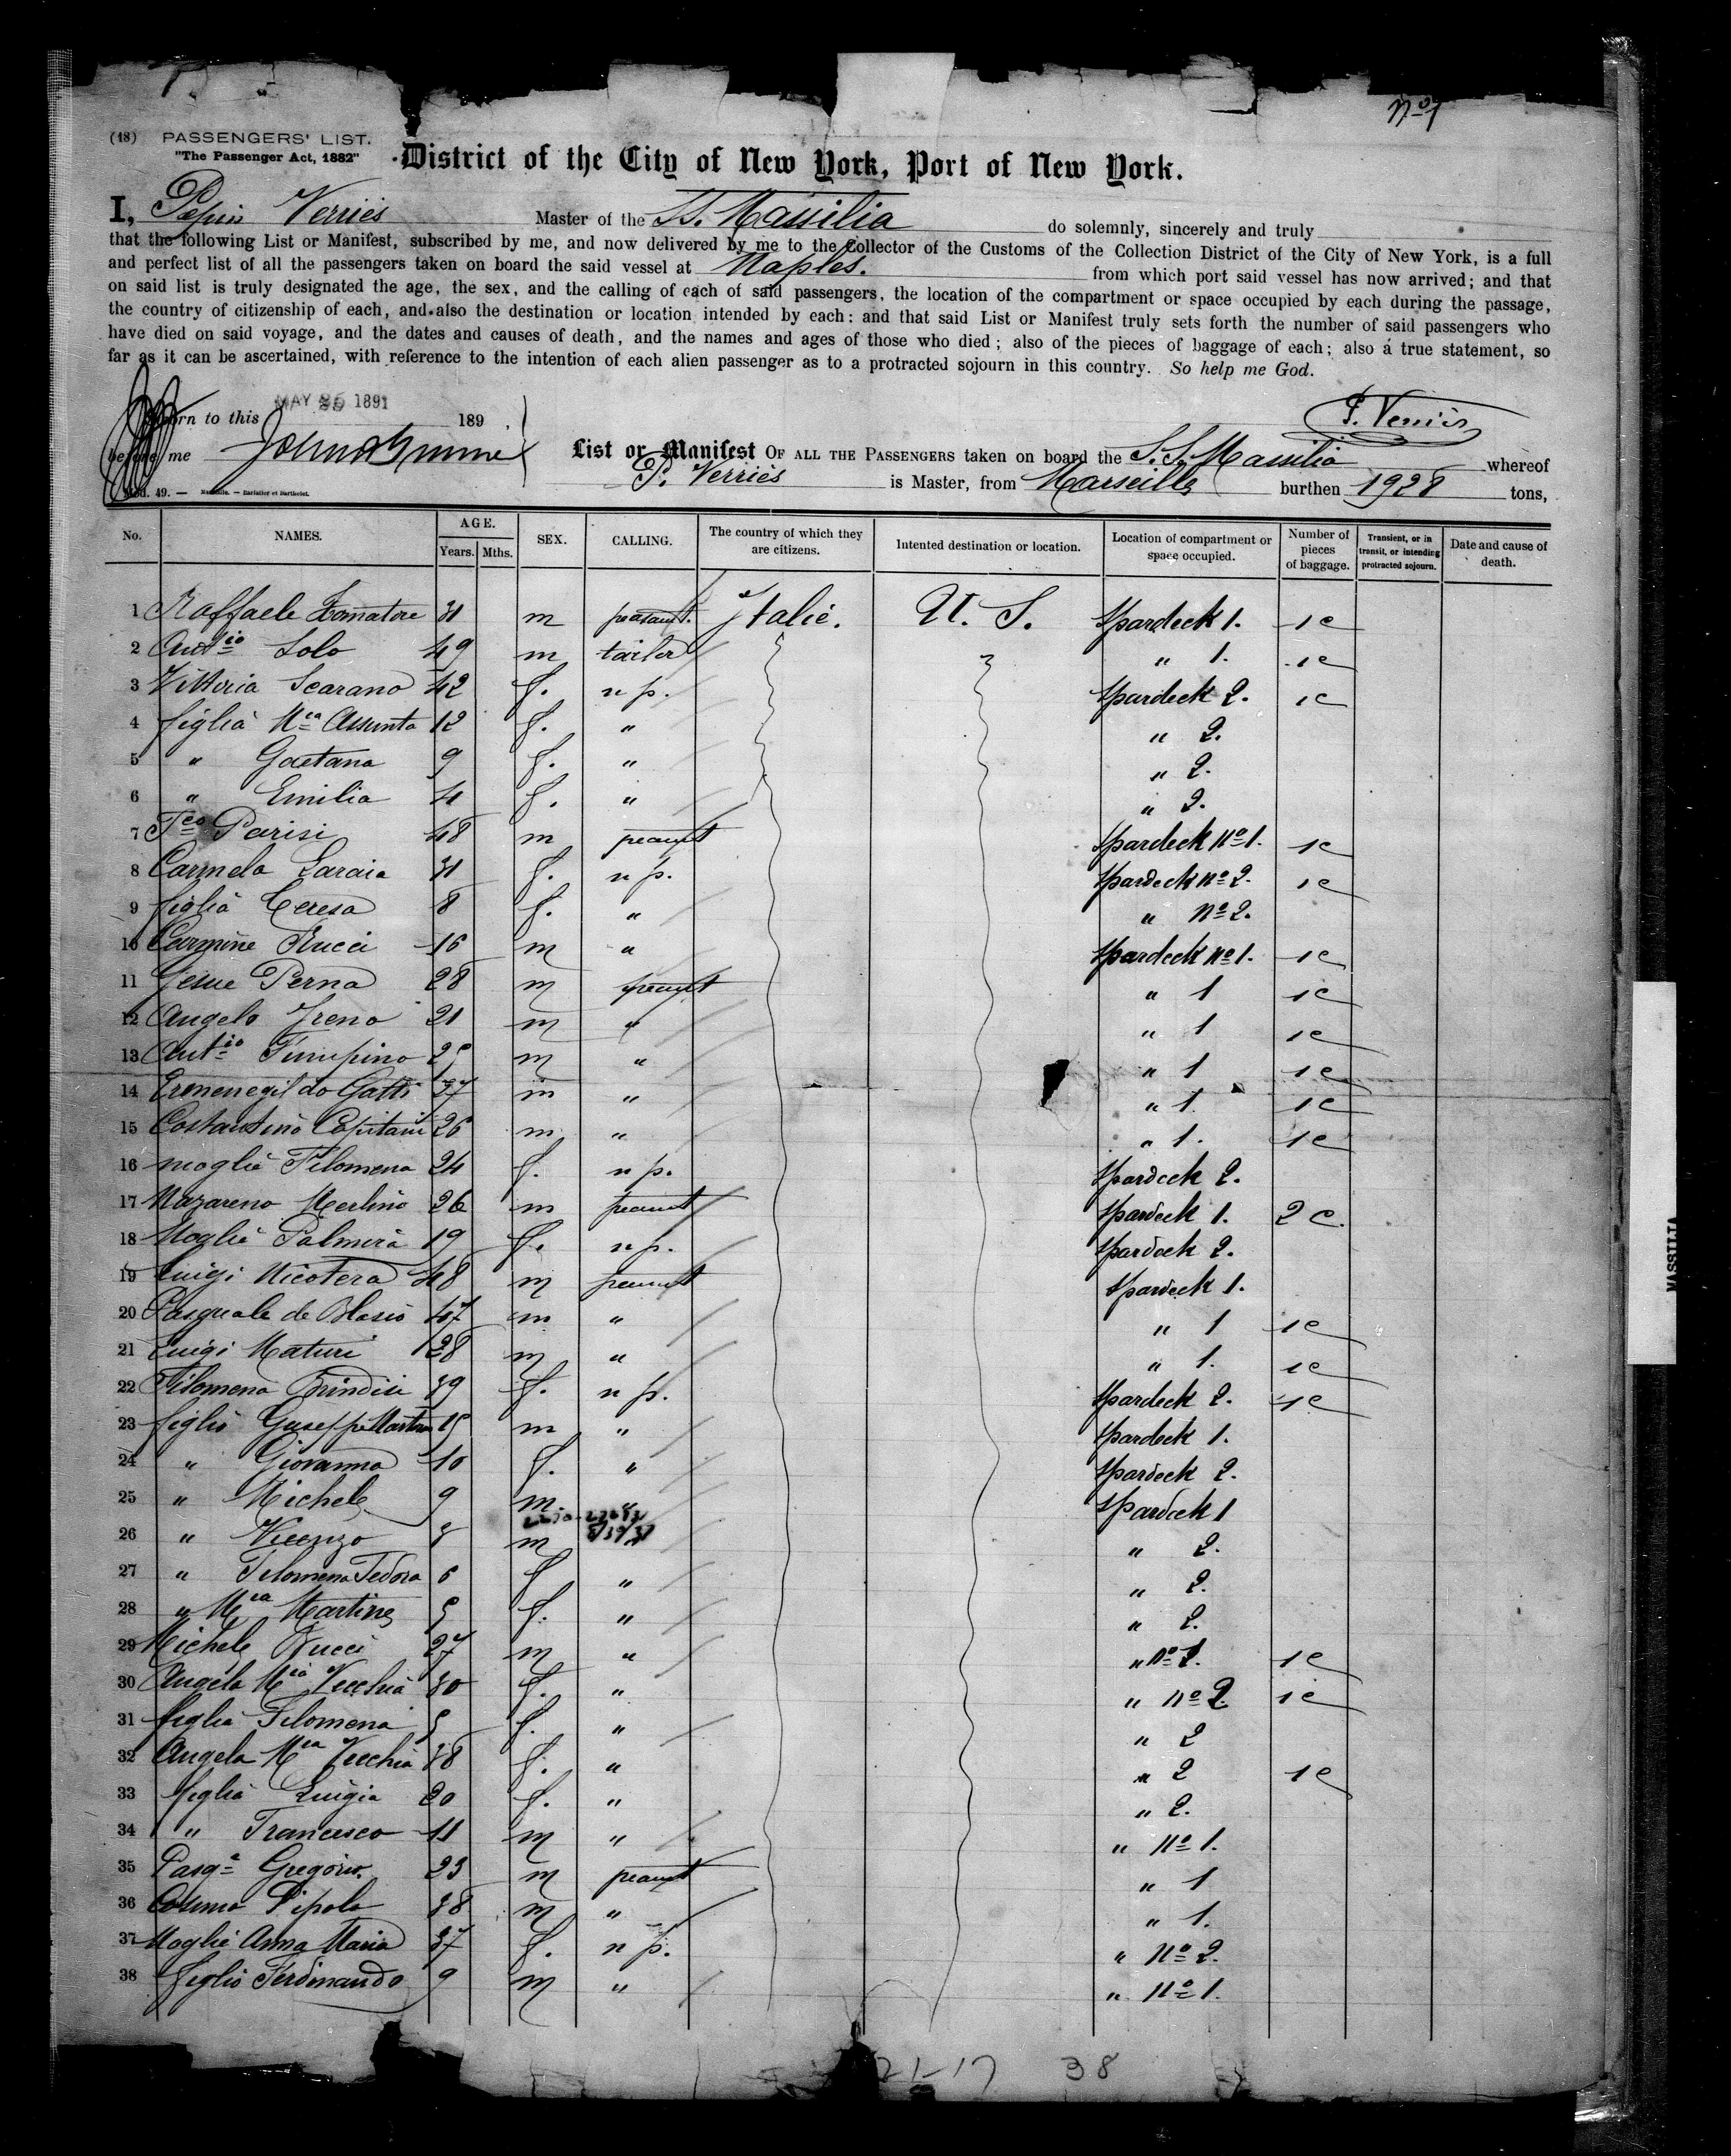 No 1
(18) PASSENGERS' LIST.
"The Passenger Act, 1882"
District of the City of New York, Port of New York.
I, Pepin Verriès Master of the SS. Massilia do solemnly, sincerely and truly
that the following List or Manifest, subscribed by me, and now delivered by me to the Collector of the Customs of the Collection District of the City of New York, is a full
and perfect list of all the passengers taken on board the said vessel at Naples. from which port said vessel has now arrived; and that
on said list is truly designated the age, the sex, and the calling of each of said passengers, the location of the compartment or space occupied by each during the passage,
the country of citizenship of each, and also the destination or location intended by each: and that said List or Manifest truly sets forth the number of said passengers who
have died on said voyage, and the dates and causes of death, and the names and ages of those who died; also of the pieces of baggage of each; also á true statement, so
far as it can be ascertained, with reference to the intention of each alien passenger as to a protracted sojourn in this country. So help me God.
Sworn to this MAY 25 1891 189 .
P. Verriès
before me
List or Manifest OF ALL THE PASSENGERS taken on board the S.S. Massilia whereof
P. Verriès is Master, from Marseille burthen 1928 tons,
Mod. 49. — Marseille. — Barlatier et Barthelet.
No. NAMES. AGE. Years. Mths. SEX. CALLING. The country of which they are citizens. Intented destination or location. Location of compartment or space occupied. Number of pieces of baggage. Transient, or in transit, or intending protracted sojourn. Date and cause of death.
1 Raffaele Zomatore 31 m peasant. Italie. U. S. Spardeck 1. 1c
2 Antio Lolo 49 m tailor " 1. 1c
3 Vittoria Scarano 42 f. n p. Spardeck 2. 1c
4 figlia Mca Assunta 12 f. " " 2.
5 " Gaetana 9 f. " " 2.
6 " Emilia 4 f. " " 2.
7 Fco Parisi 48 m peasant Spardeck No 1. 1c
8 Carmela Laraia 31 f. n p. Spardeck No 2. 1c
9 figlia Teresa 8 f. " " No 2.
10 Carmine Rucci 16 m " Spardeck No 1. 1c
11 Gesue Perna 28 m peasant " 1 1c
12 Angelo Ireno 21 m " " 1 1c
13 Antio 25 m " " 1 1c
14 Ermenegildo Gatti 37 m " " 1 1c
15 Costantino Capitani 26 m " " 1. 1c
16 moglie Filomena 24 f. n p. Spardeck 2.
17 Nazareno Merlino 26 m peasant Spardeck 1. 2 c.
18 Moglie Palmira 19 f. n p. Spardeck 2.
19 Luigi Nicotera 48 m peasant Spardeck 1.
20 Pasquale de Blasio 47 m " " 1 1c
21 Luigi Maturi 28 m " " 1. 1c
22 Filomena Brindisi 39 f. n p. Spardeck 2. 1c
23 figlio Guseppe 15 m " Spardeck 1.
24 " Giovanna 10 f. " Spardeck 2.
25 " Michele 9 m. " Spardeck 1
26 " Vicenzo 8 m " 2.
27 " Filomena Tedora 6 f " " 2.
28 " Mia Martine 5 f. " " 2.
29 Michele Rucci 27 m " " No 1. 1c
30 Angela Mia Vecchia 30 f. " " No 2 1c
31 figlia Filomena 5 f. " " 2
32 Angela Mia Vecchia 38 f. " " 2 1c
33 figlia Luigia 20 f. " " 2.
34 " Francesco 11 m " " No 1.
35 Pasqe Gregorio. 23 m peasant " 1
36 Cosimo Pipolo 38 m " " 1.
37 Moglie Anna Maria 37 f. n p. " No 2.
38 figlio Ferdinando 9 m " " No 1.
21-17 38
MASSILIA